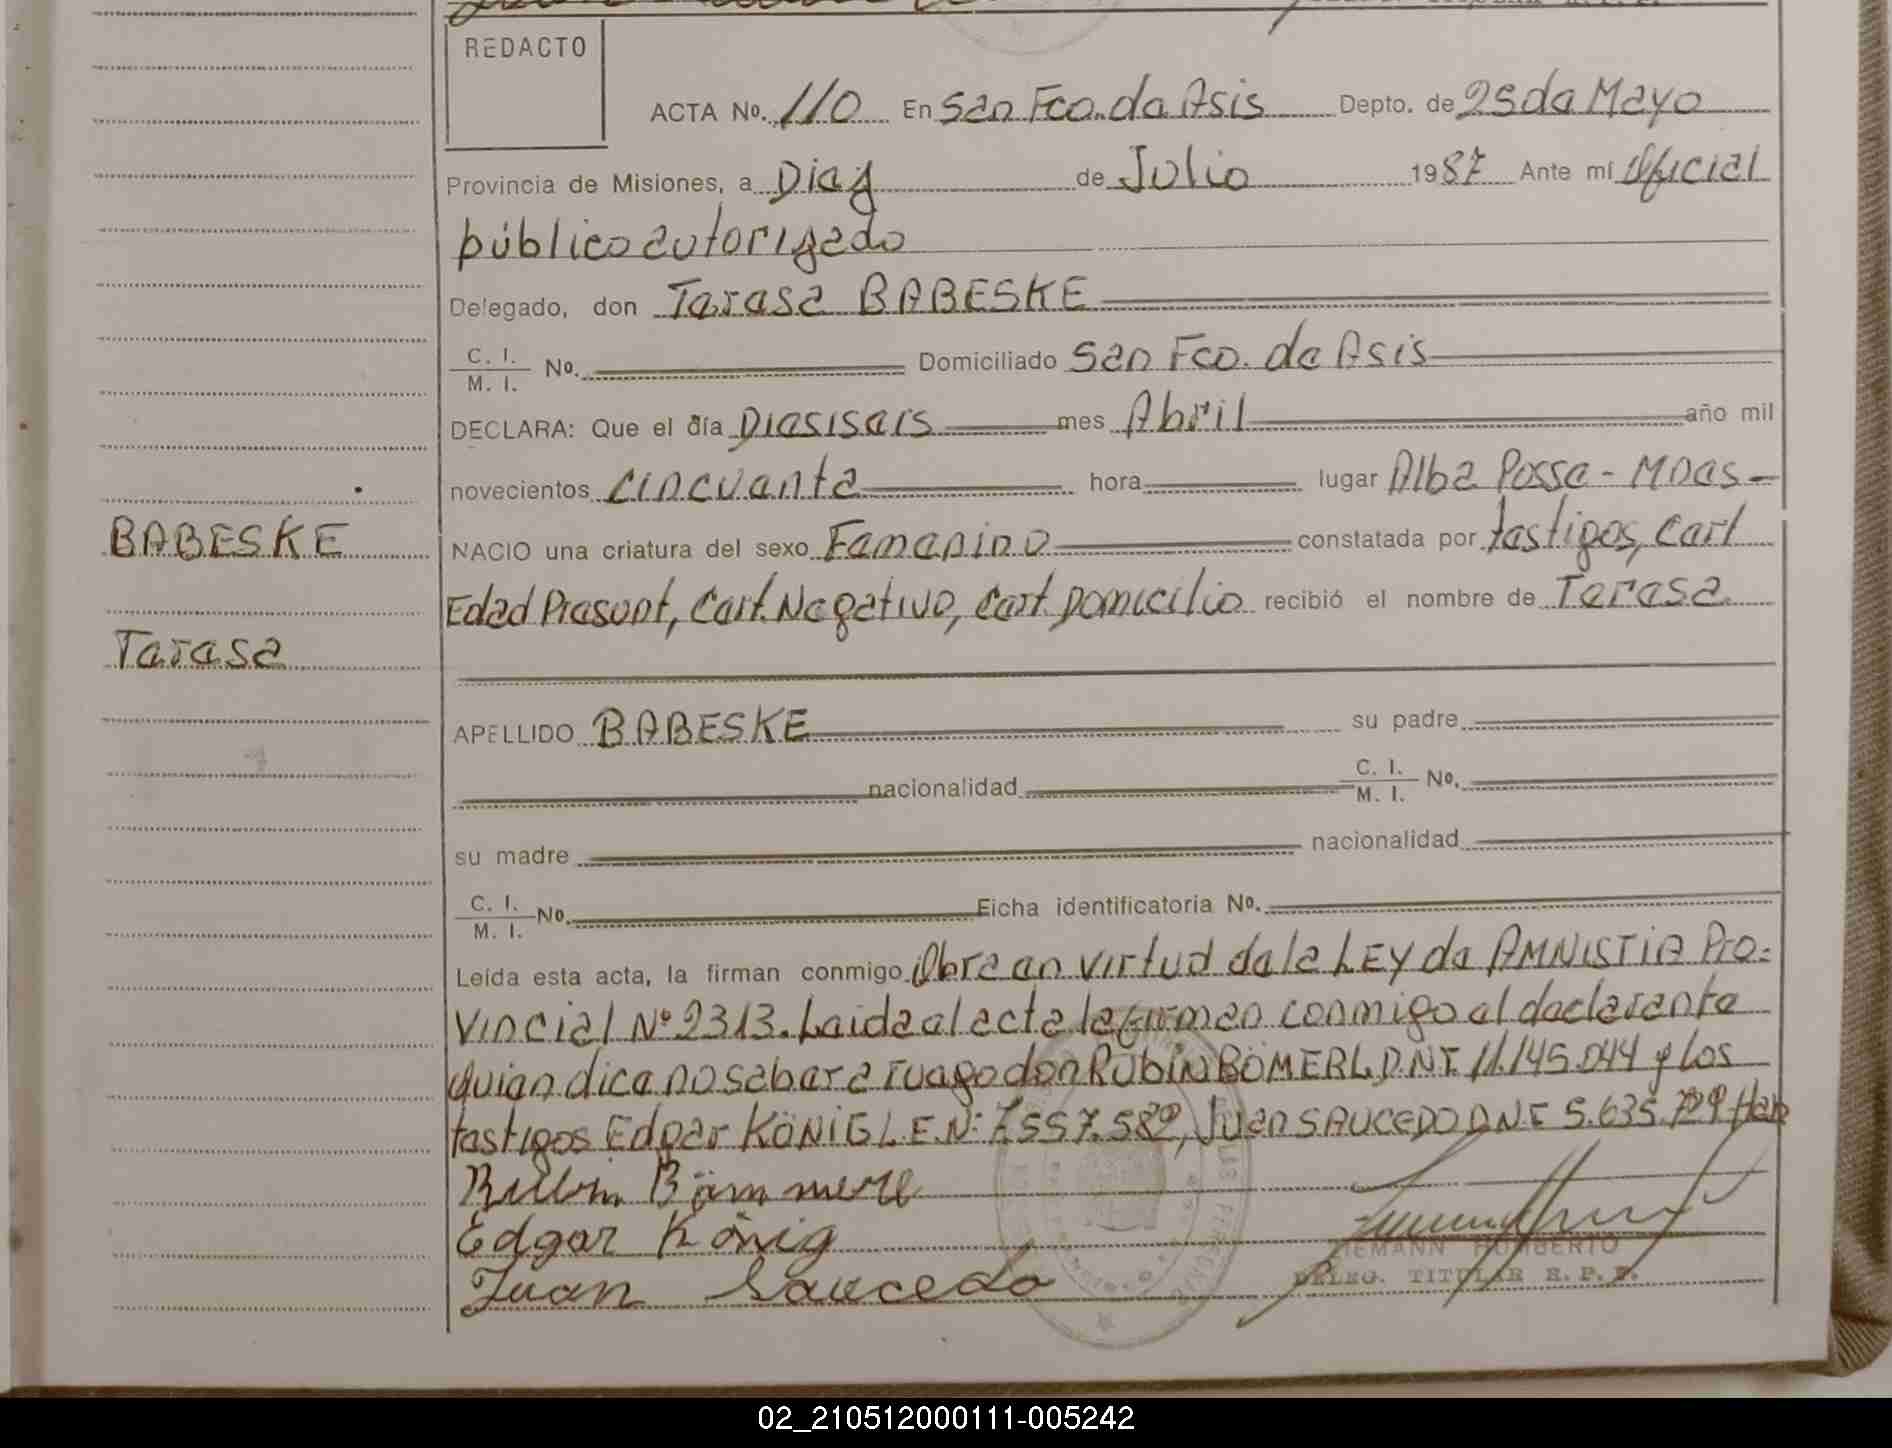 REDACTO
ACTA No. 110 En San Fco. de Asis Depto. de 25 de Mayo
Provincia de Misiones, a Diez de Julio 1987 Ante mí Oficial
público autorizado
Delegado, don Teresa BABESKE
C. I.
M. I. No. Domiciliado San Fco. de Asis
DECLARA: Que el día Diesiseis mes Abril año mil
novecientos cincuenta hora lugar Alba Posse - Mnes -
BABESKE
NACIO una criatura del sexo Femenino constatada por testigos, Cert
Edad Presunt, Cert. Negativo, Cert Domicilio recibió el nombre de Teresa
Teresa
APELLIDO BABESKE su padre
nacionalidad C. I.
M. I. No.
su madre nacionalidad
C. I.
M. I. No. Ficha identificatoria No.
Leída esta acta, la firman conmigo Obra en virtud de la LEY de AMNISTIA Pro=
vincial Nº 2313. Leida el acta la firman conmigo el declarante
quien dice no saber a ruego don Rubin BÖMERL D.N.I. 11.145.044 y los
testigos Edgar KÖNIG L.E.N: 7.557.582, Juan SAUCEDO D.N.I 5.635.729
Rubin Bömmerl
Edgar König
Juan Saucedo
HUMBERTO
DELEG. TITULAR R. P. P.
02_210512000111-005242